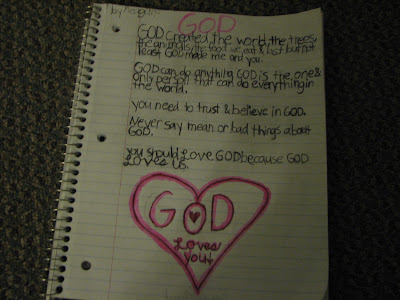 by
GOD
GOD created the world, the trees,
the animals, the food we eat & last but not
least GOD made me and you.
GOD can do anything GOD is the one &
only person that can do everything in
the world.
you need to trust & believe in GOD.
Never say mean or bad things about
GOD.
you should Love GOD because GOD
LOVES US.
GOD
Loves
you!